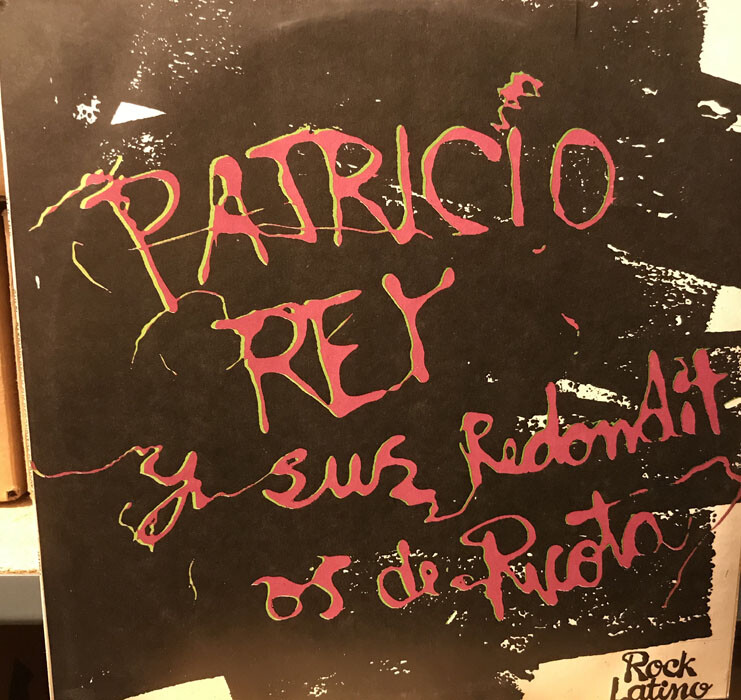 PATRICIO
REY
y sus Redondit
os de Ricota
Rock
Latino